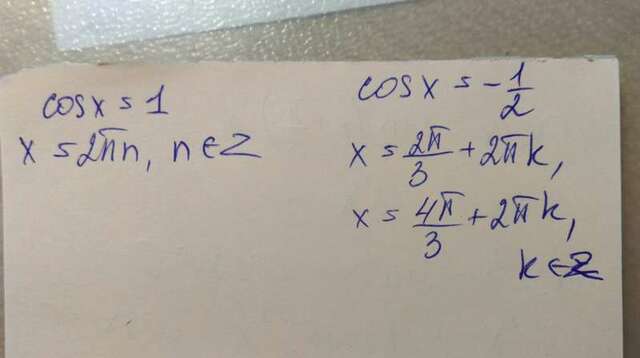 cosx = 1
x = 2πn, n ∈ Z
cosx = -1/2
x = 2π/3 + 2πk,
x = 4π/3 + 2πk,
k ∈ Z